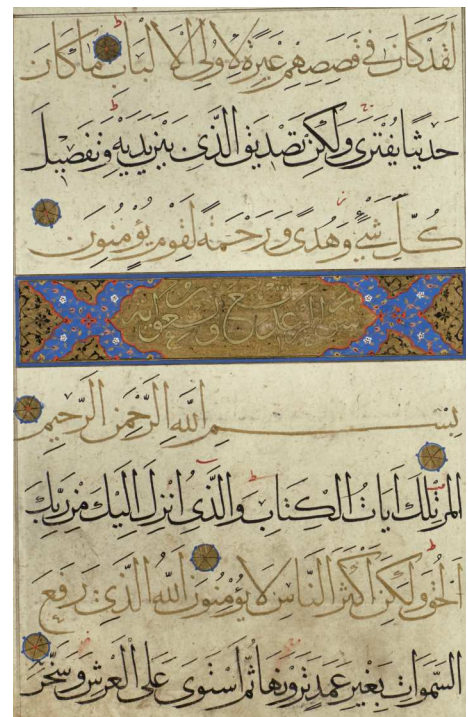 لَقَدْ كَانَ فِي قَصَصِهِمْ عِبْرَةٌ لِأُولِي الْأَلْبَابِ مَا كَانَ
حَدِيثًا يُفْتَرَى وَلَكِنْ تَصْدِيقَ الَّذِي بَيْنَ يَدَيْهِ وَتَفْصِيلَ
كُلِّ شَيْءٍ وَهُدًى وَرَحْمَةً لِقَوْمٍ يُؤْمِنُونَ
سورة الرعد
بِسْمِ اللَّهِ الرَّحْمَنِ الرَّحِيمِ
المر تِلْكَ آيَاتُ الْكِتَابِ وَالَّذِي أُنْزِلَ إِلَيْكَ مِنْ رَبِّكَ
الْحَقُّ وَلَكِنَّ أَكْثَرَ النَّاسِ لَا يُؤْمِنُونَ اللَّهُ الَّذِي رَفَعَ
السَّمَوَاتِ بِغَيْرِ عَمَدٍ تَرَوْنَهَا ثُمَّ اسْتَوَى عَلَى الْعَرْشِ وَسَخَّرَ